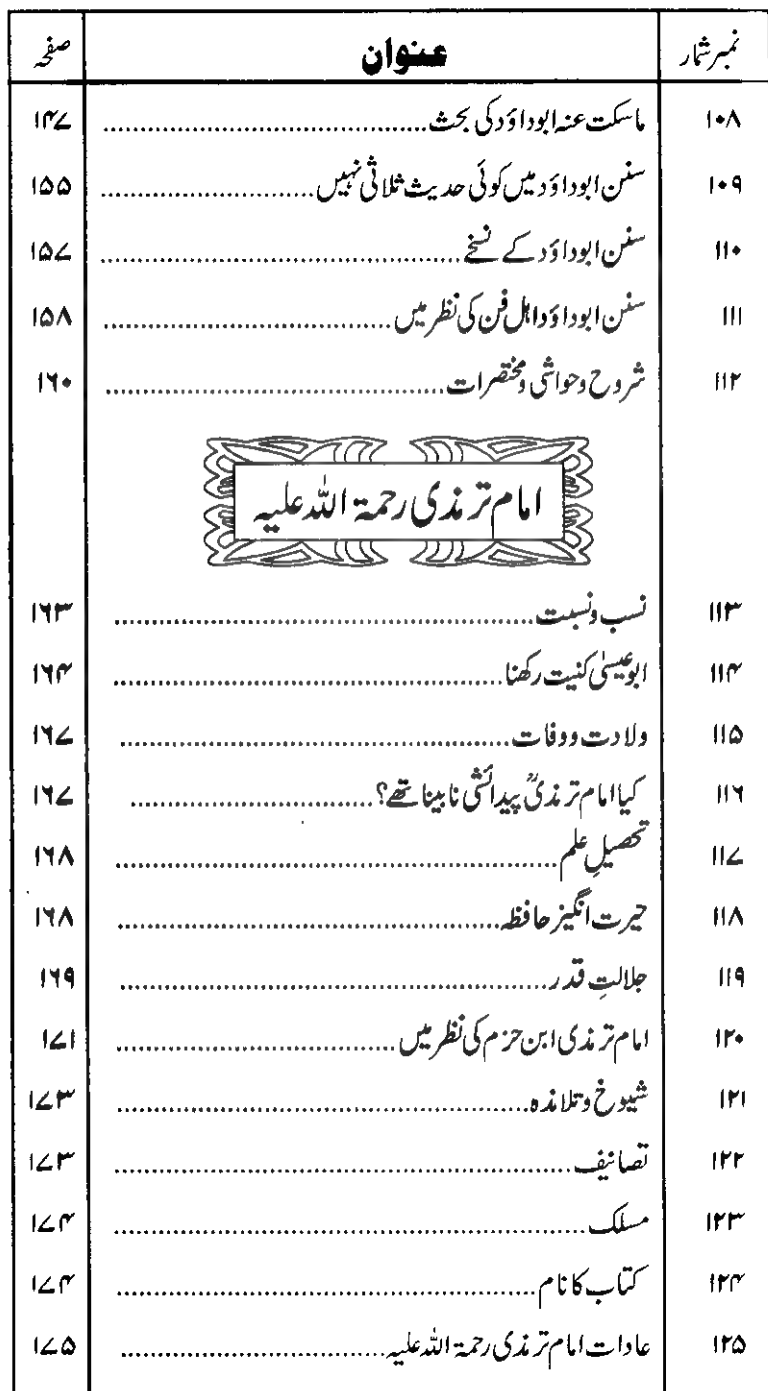 نمبر شمار عنوان صفحہ
۱۰۸ ماسکت عنہ ابوداؤد کی بحث ۱۴۷
۱۰۹ سنن ابوداؤد میں کوئی حدیث ثلاثی نہیں ۱۵۵
۱۱۰ سنن ابوداؤد کے نسخے ۱۵۷
۱۱۱ سنن ابوداؤد اہل فن کی نظر میں ۱۵۸
۱۱۲ شروح وحواشی ومختصرات ۱۶۰
امام ترمذی رحمۃ اللہ علیہ
۱۱۳ نسب ونسبت ۱۶۳
۱۱۴ ابوعیسیٰ کنیت رکھنا ۱۶۴
۱۱۵ ولادت ووفات ۱۶۷
۱۱۶ کیا امام ترمذیؒ پیدائشی نابینا تھے؟ ۱۶۷
۱۱۷ تحصیلِ علم ۱۶۸
۱۱۸ حیرت انگیز حافظہ ۱۶۸
۱۱۹ جلالتِ قدر ۱۶۹
۱۲۰ امام ترمذی ابن حزم کی نظر میں ۱۷۱
۱۲۱ شیوخ وتلامذہ ۱۷۳
۱۲۲ تصانیف ۱۷۳
۱۲۳ مسلک ۱۷۴
۱۲۴ کتاب کا نام ۱۷۴
۱۲۵ عادات امام ترمذی رحمۃ اللہ علیہ ۱۷۵